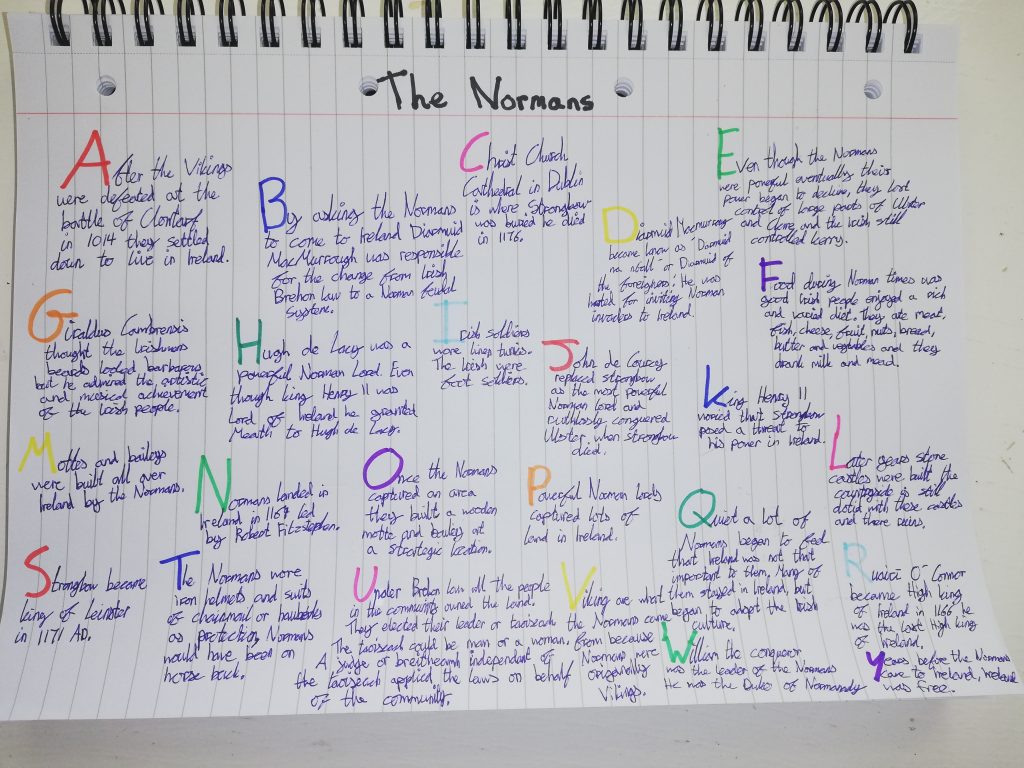 The Normans
After the Vikings
were defeated at the
battle of Clontarf
in 1014 they settled
down to live in Ireland.
By asking the Normans
to come to Ireland Diarmuid
MacMurrough was responsible
for the change from Irish
Brehon law to a Norman feudal
system.
Christ Church
Cathedral in Dublin
is where Strongbow
was buried he died
in 1176.
Diarmuid Macmurray
became know as "Diarmuid
na nGall" or Diarmuid of
the foreigners'. He was
hated for inviting Norman
invaders to Ireland.
Even though the Normans
were powerful eventually their
power began to decline, they lost
control of large parts of Ulster
and Clare and the Irish still
controlled kerry.
Food during Norman times was
good Irish people enjoyed a rich
and varied diet. They ate meat,
fish, cheese, fruit, nuts, bread,
butter and vegetables and they
drank milk and mead.
Giraldus Cambrensis
thought the Irishmens
beards looked barbarous
but he admired the artistic
and musical achievement
of the Irish people.
Hugh de Lacy was a
powerful Norman Lord. Even
though king Henry II was
Lord of Ireland he granted
Meath to Hugh de Lacy.
Irish soldiers
wore linen tunics.
The Irish were
foot soldiers.
John de Courcey
replaced strongbow
as the most powerful
Norman lord and
ruthlessly conquered
Ulster when strongbow
died.
King Henry II
worried that Strongbow
posed a threat to
his power in Ireland.
Later years stone
castles were built the
countryside is still
dotid with these castles
and there ruins.
Mottes and baileys
were built all over
Ireland by the Normans.
Normans landed in
Ireland in 1167 led
by Robert Fitzstephen.
Once the Normans
captured an area
they built a wooden
motte and bailey at
a strartegic location.
Powerful Norman lords
captured lots of
land in Ireland.
Quiet a lot of
Normans began to feel
that Ireland was not that
important to them. Many of
them stayed in Ireland, but
began to adopt the Irish
culture.
Ruairí O' Connor
became High king
of Ireland in 1166 he
was the last High king
of Ireland.
Strongbow became
king of Leinster
in 1171 AD.
The Normans wore
iron helmets and suits
of chainmail or hauberks
as protection Normans
would have been on
horse back.
Under Brehon law all the people
in the community owned the land.
They elected their leader or taoiseach
The taoiseach could be man or a woman.
A judge or breitheamh independent of
the taoiseach applied the laws on behalf
of the community.
Viking are what
the Normans came
from because
Normans were
origanially
Vikings.
William the conqueror
was the leader of the Normans
He was the Duke of Normandy
Years before the Normans
came to Ireland, Ireland
was free.